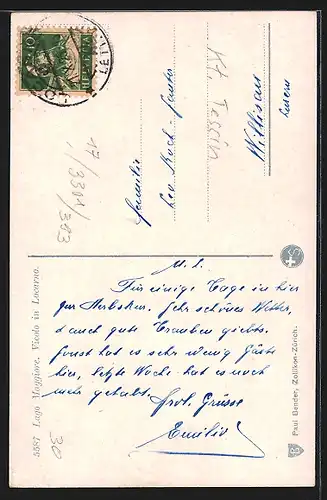 HELVETIA
17/3301/383
Kt. Tessin
Familie
Leo Koch-Suter
Willisau
Luzern
M. L.
Für einige Tage in hier
zur Herbstkur. Sehr schönes Wetter,
& auch gute Trauben giebts.
Sonst hat es sehr wenig Gäste
hier, letzte Woche hat es noch
mehr gehabt. Frol. Grüsse
Emilie
30
5587 Lago Maggiore. Vicolo in Locarno.
Paul Bender, Zollikon-Zürich.